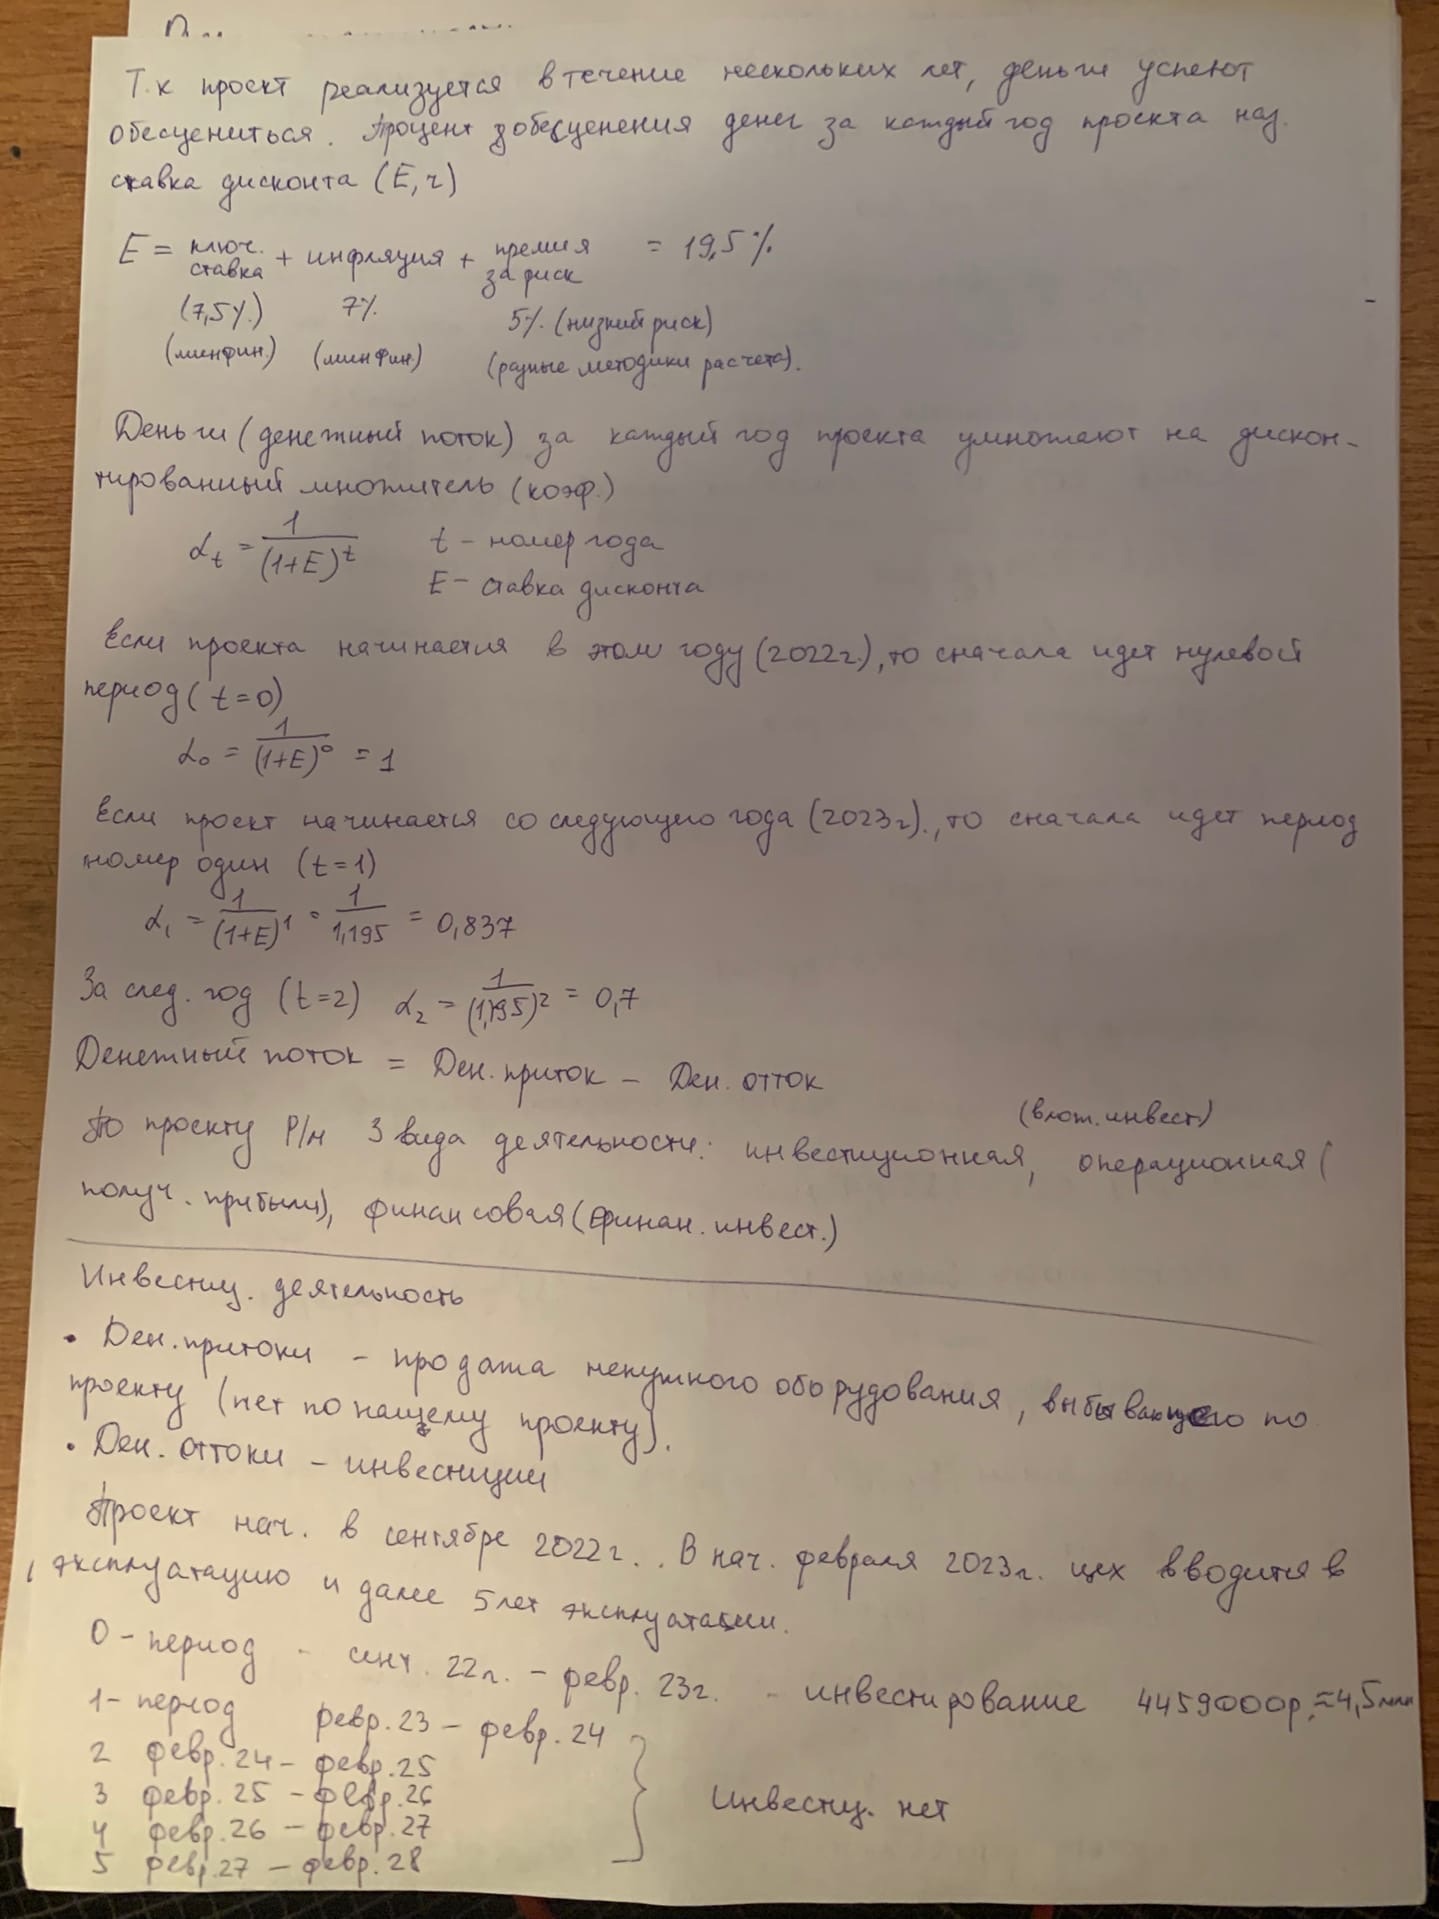 Т.к проект реализуется в течение нескольких лет, деньги успеют
обесцениться. Процент обесценения денег за каждый год проекта наз.
ставка дисконта (E, r)
E = ключ. ставка + инфляция + премия за риск = 19,5%
(7,5%) 7% 5% (низкий риск)
(минфин.) (минфин.) (разные методики расчета).
Деньги (денежный поток) за каждый год проекта умножают на дискон-
тированный множитель (коэф.)
αt = 1/(1+E)^t t – номер года
E – ставка дисконта
Если проекта начинается в этом году (2022г.), то сначала идет нулевой
период (t=0)
α0 = 1/(1+E)^0 = 1
Если проект начинается со следующего года (2023г)., то сначала идет период
номер один (t=1)
α1 = 1/(1+E)^1 = 1/1,195 = 0,837
За след. год (t=2) α2 = 1/(1,195)^2 = 0,7
Денежный поток = Ден. приток – Ден. отток
(влож. инвест)
По проекту Р/м 3 вида деятельности: инвестиционная, операционная (
получ. прибыли), финансовая (финан. инвест.)
Инвестиц. деятельность
• Ден. притоки – продажа ненужного оборудования, выбывающего по
проекту (нет по нашему проекту).
• Ден. оттоки – инвестиции
Проект нач. в сентябре 2022г.. В нач. февраля 2023г. цех вводится в
эксплуатацию и далее 5 лет эксплуатации.
0 – период – сент. 22г. – февр. 23г. – инвестирование 4459000р. ≈ 4,5 млн
1 – период февр. 23 – февр. 24
2 февр. 24 – февр. 25
3 февр. 25 – февр. 26
Инвестиц. нет
4 февр. 26 – февр. 27
5 февр. 27 – февр. 28